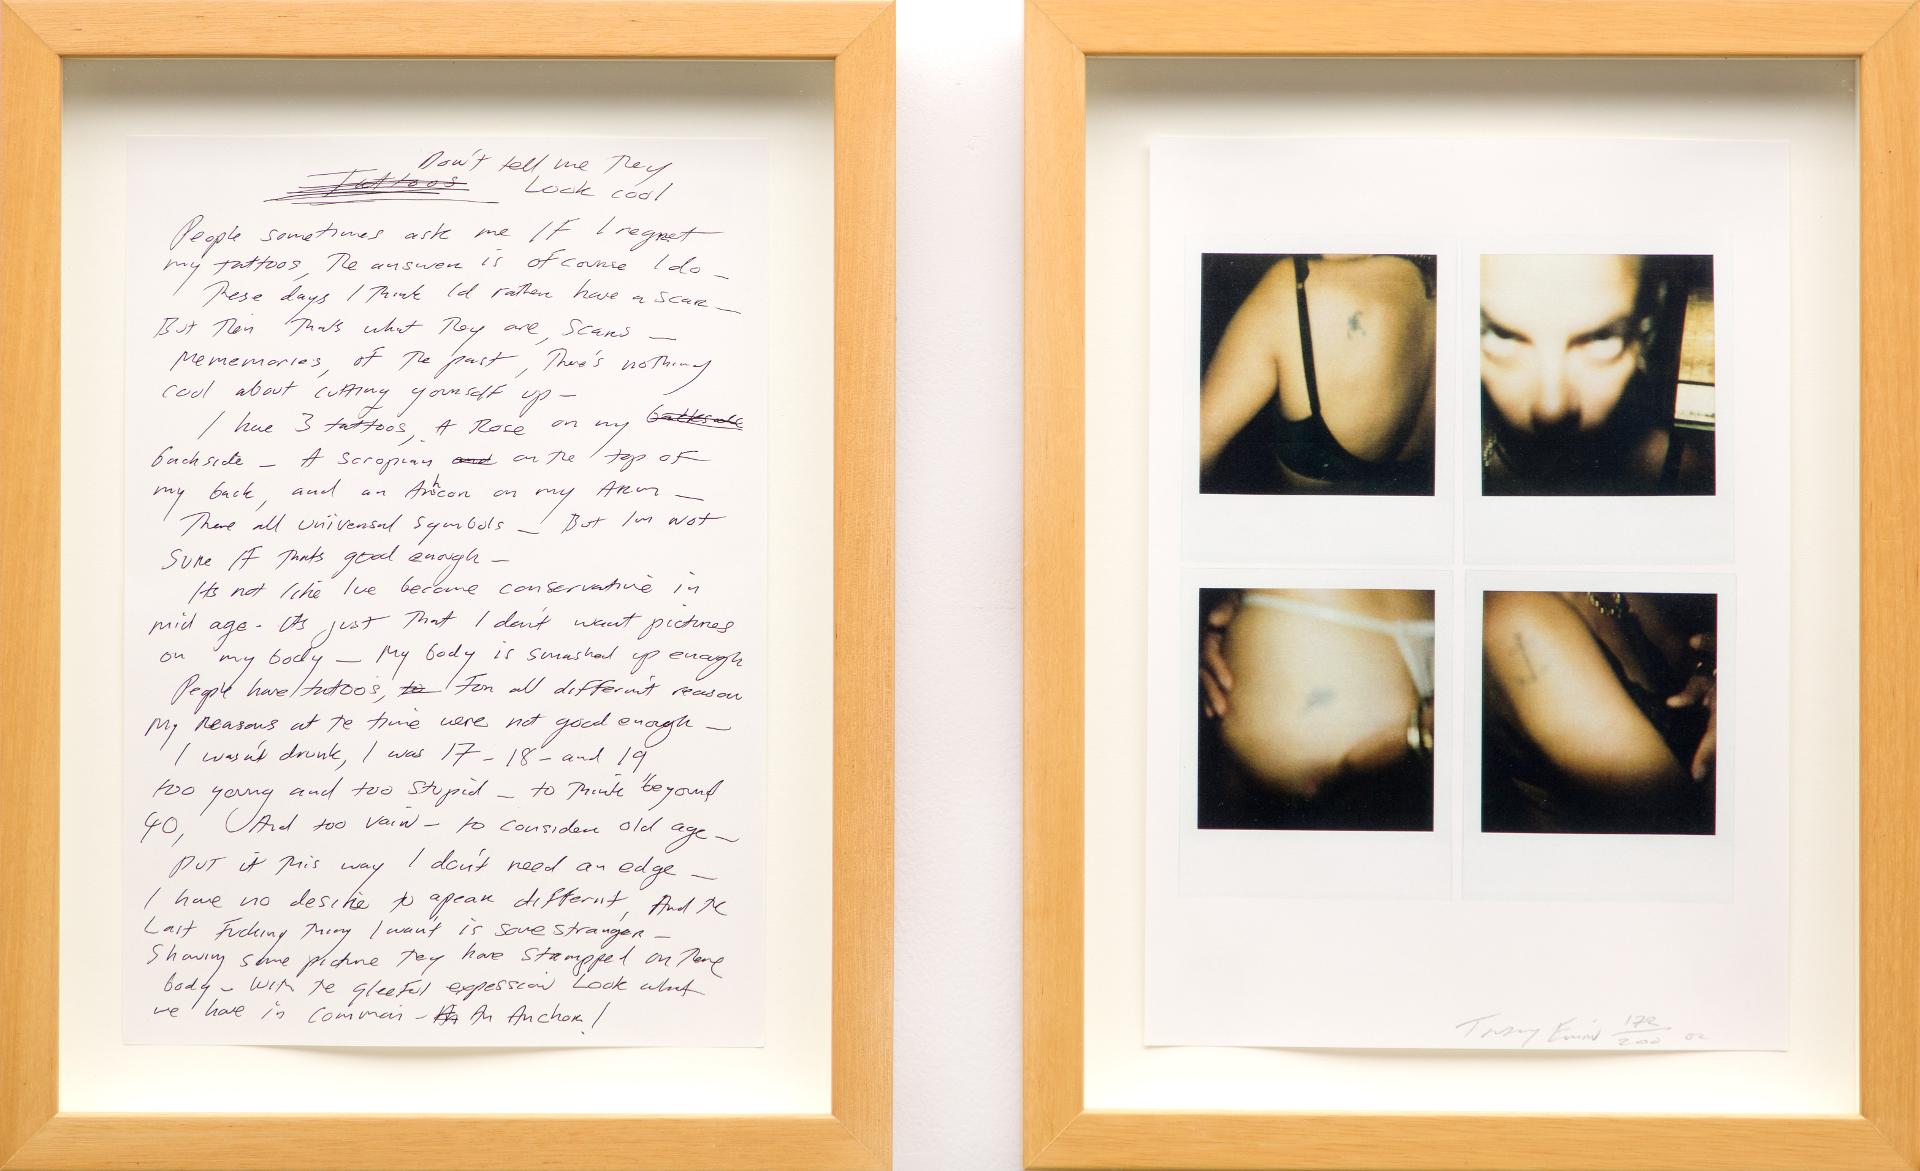 Don't tell me They
Tattoos Look cool
People sometimes ask me IF I regret
my tattoos, The answer is ofcourse I do _
These days I Think Id rather have a scar _
But Then Thats what They are, scars _
Mememories, of the past, There's nothing
cool about cutting yourself up _
I have 3 tattoos, A Rose on my backside
backside _ A Scropian and on the top of
my back, and an Anhcor on my Arm _
There all universal symbols _ But Im not
Sure IF Thats good enough _
Its not like Ive become conservative in
mid age - Its just That I don't want pictures
on my body _ My body is smashed up enough
People have tattoo's, to For all different reason
My Reasons at te time were not good enough _
I wasn't drunk, I was 17 - 18 - and 19
too young and too stupid _ to Think beyond
40, And too vain - to consider old age _
PUT it This way I don't need an edge _
I have no desire to apear differnt, And te
Last Fucking Thing I want is some stranger _
Showing some picture They have stampped on There
body - With te gleeful expession Look what
we have in common - An An Anchor!
Tracey Emin 172/200 02